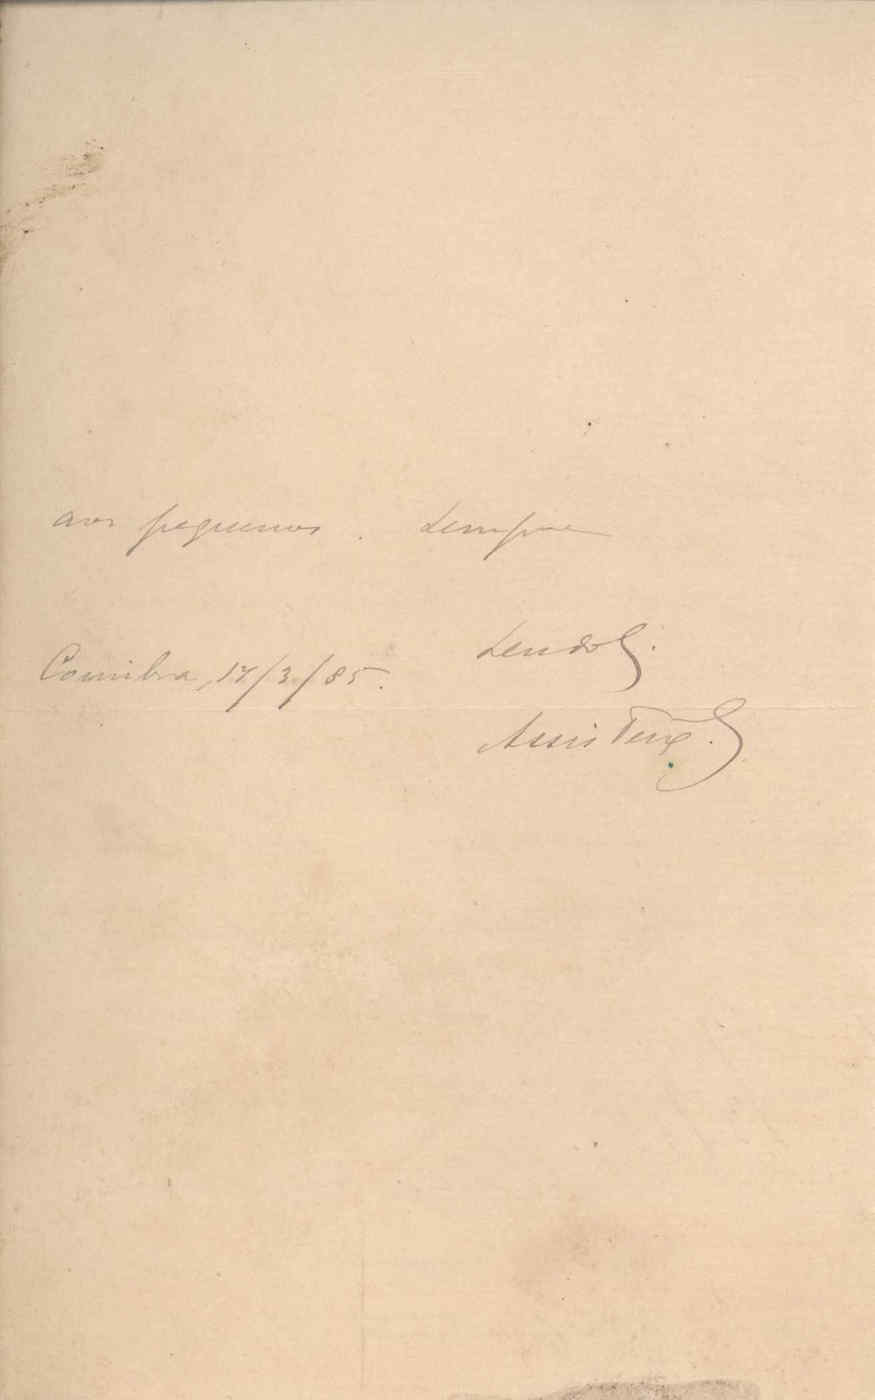 aos pequenos. Sempre
Seu do C.
Coimbra, 17/3/85.
Assis Teixª.